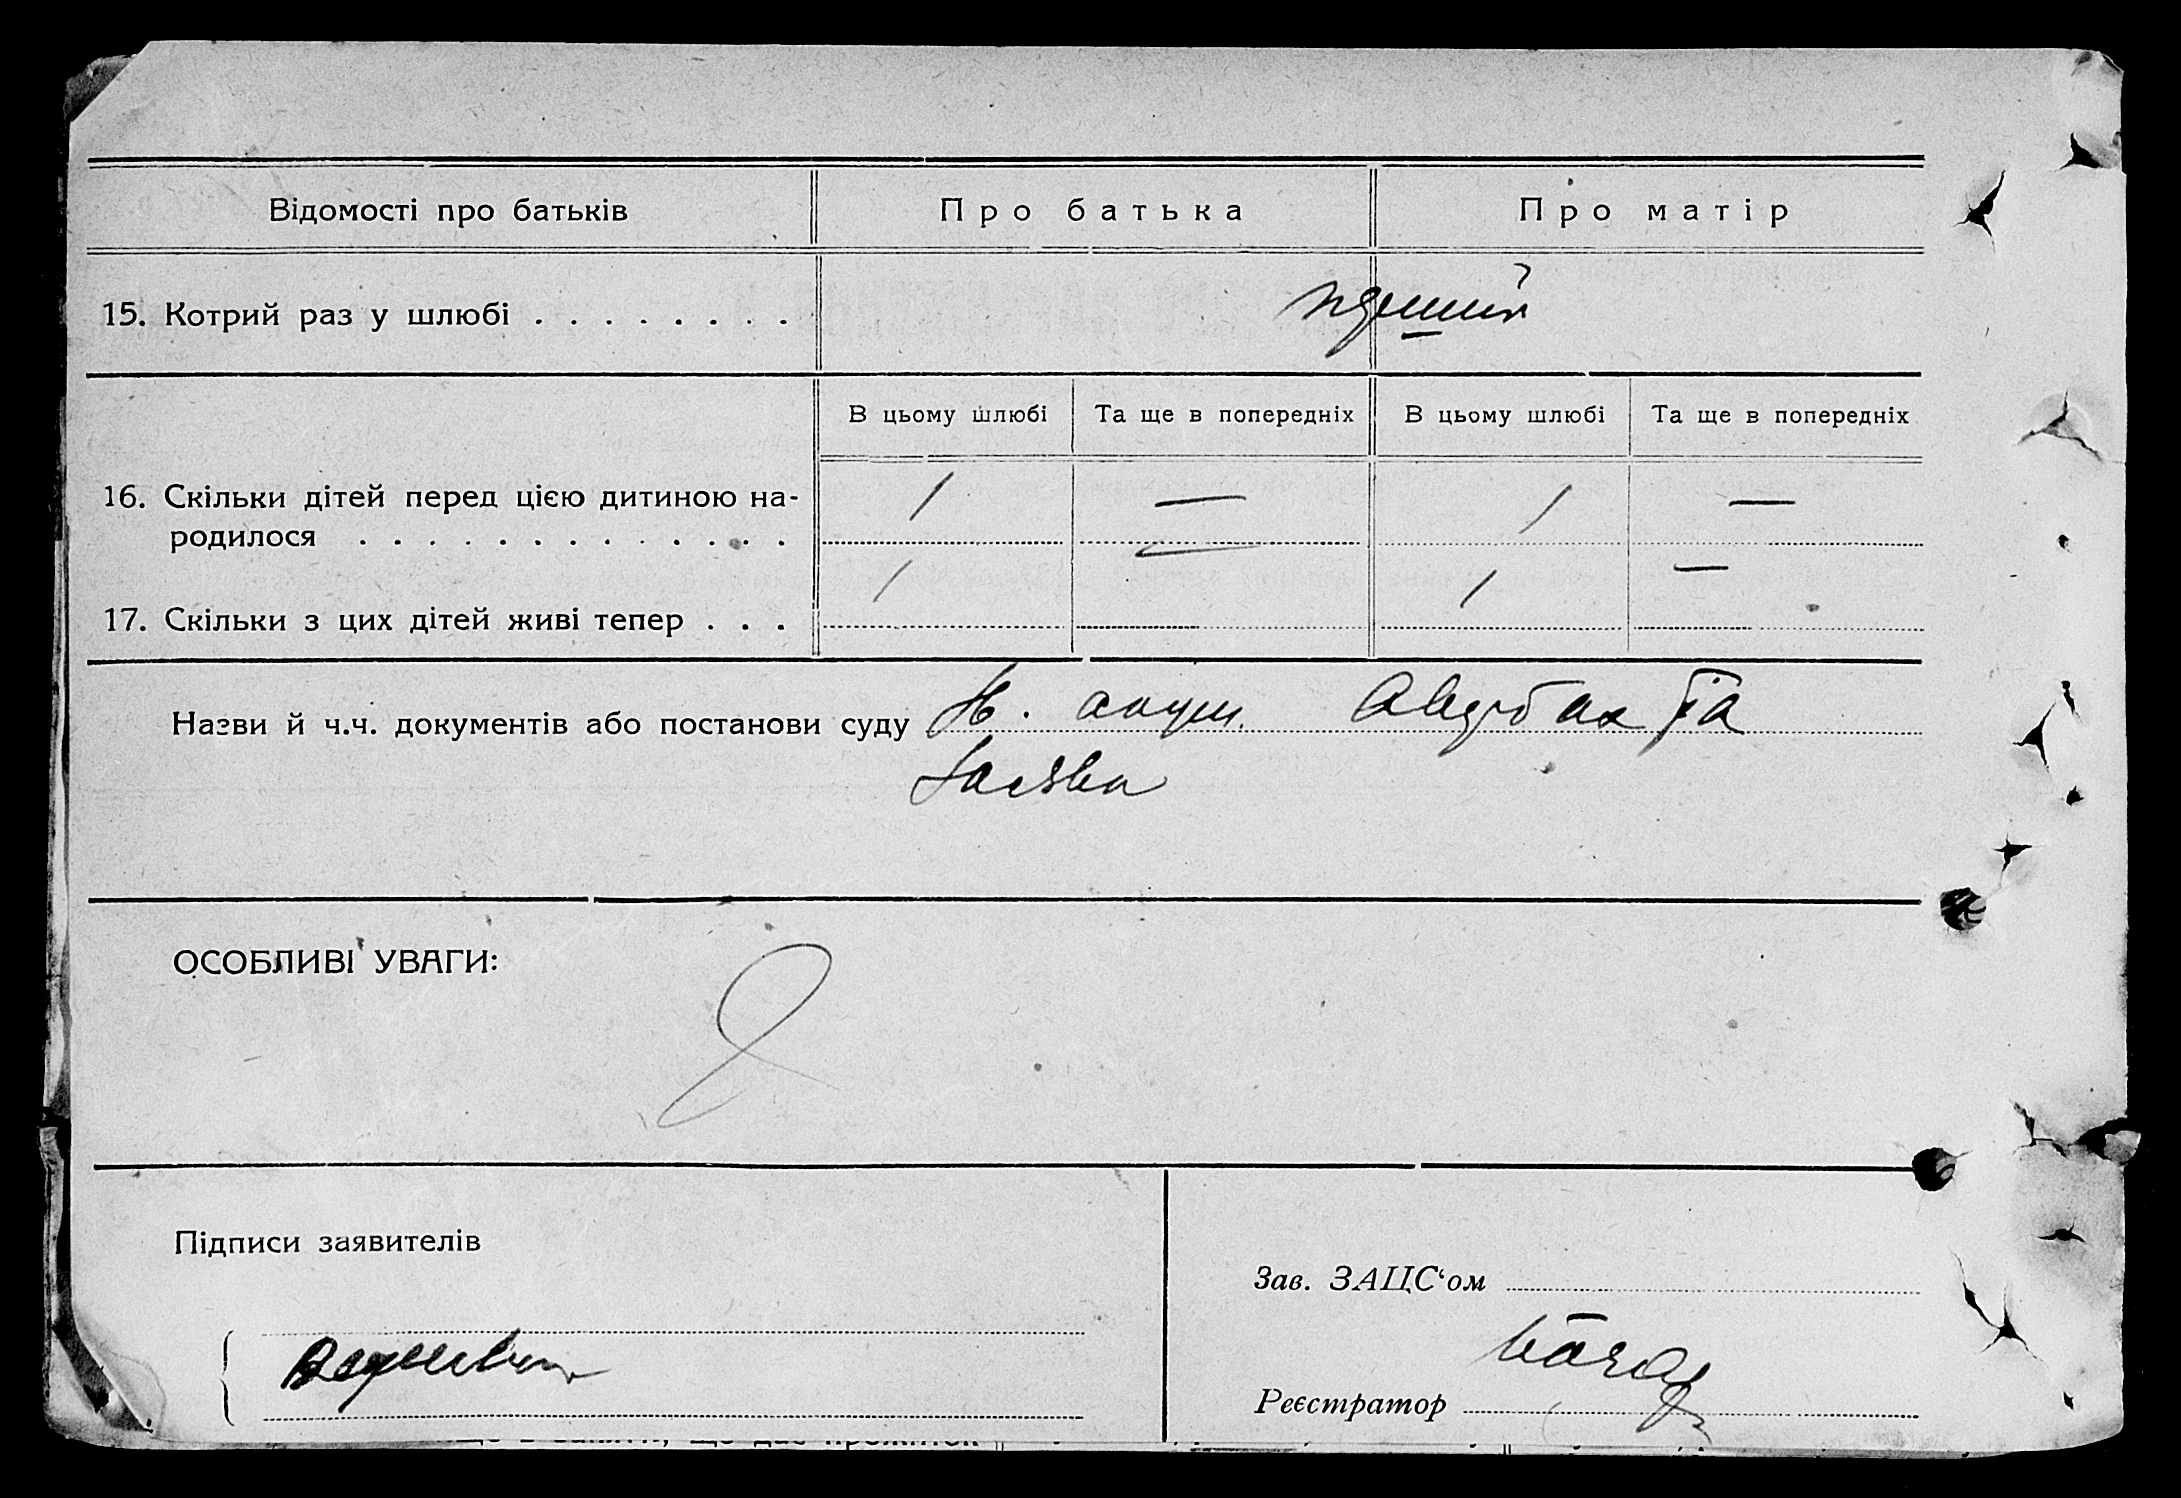 Відомості про батьків
Про батька
Про матір
15. Котрий раз у шлюбі . . . . . . . .
В цьому шлюбі
Та ще в попередніх
В цьому шлюбі
Та ще в попередніх
16. Скільки дітей перед цією дитиною на-
родилося . . . . . . . . . . . . .
1 — 1 —
17. Скільки з цих дітей живі тепер . . .
1 — 1 —
Назви й ч.ч. документів або постанови суду акуш. Авербах та
заява
ОСОБЛИВІ УВАГИ:
Підписи заявителів
Зав. ЗАЦС‘ом
Реєстратор